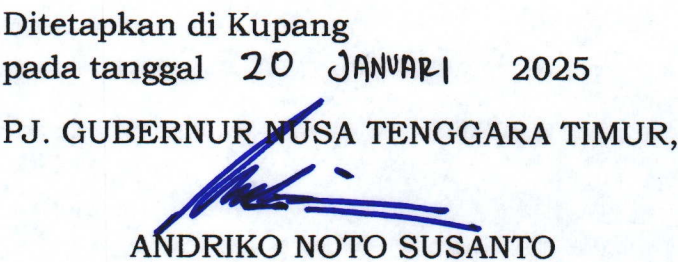 Ditetapkan di Kupang
pada tanggal 20 JANUARI 2025
PJ. GUBERNUR NUSA TENGGARA TIMUR,
ANDRIKO NOTO SUSANTO